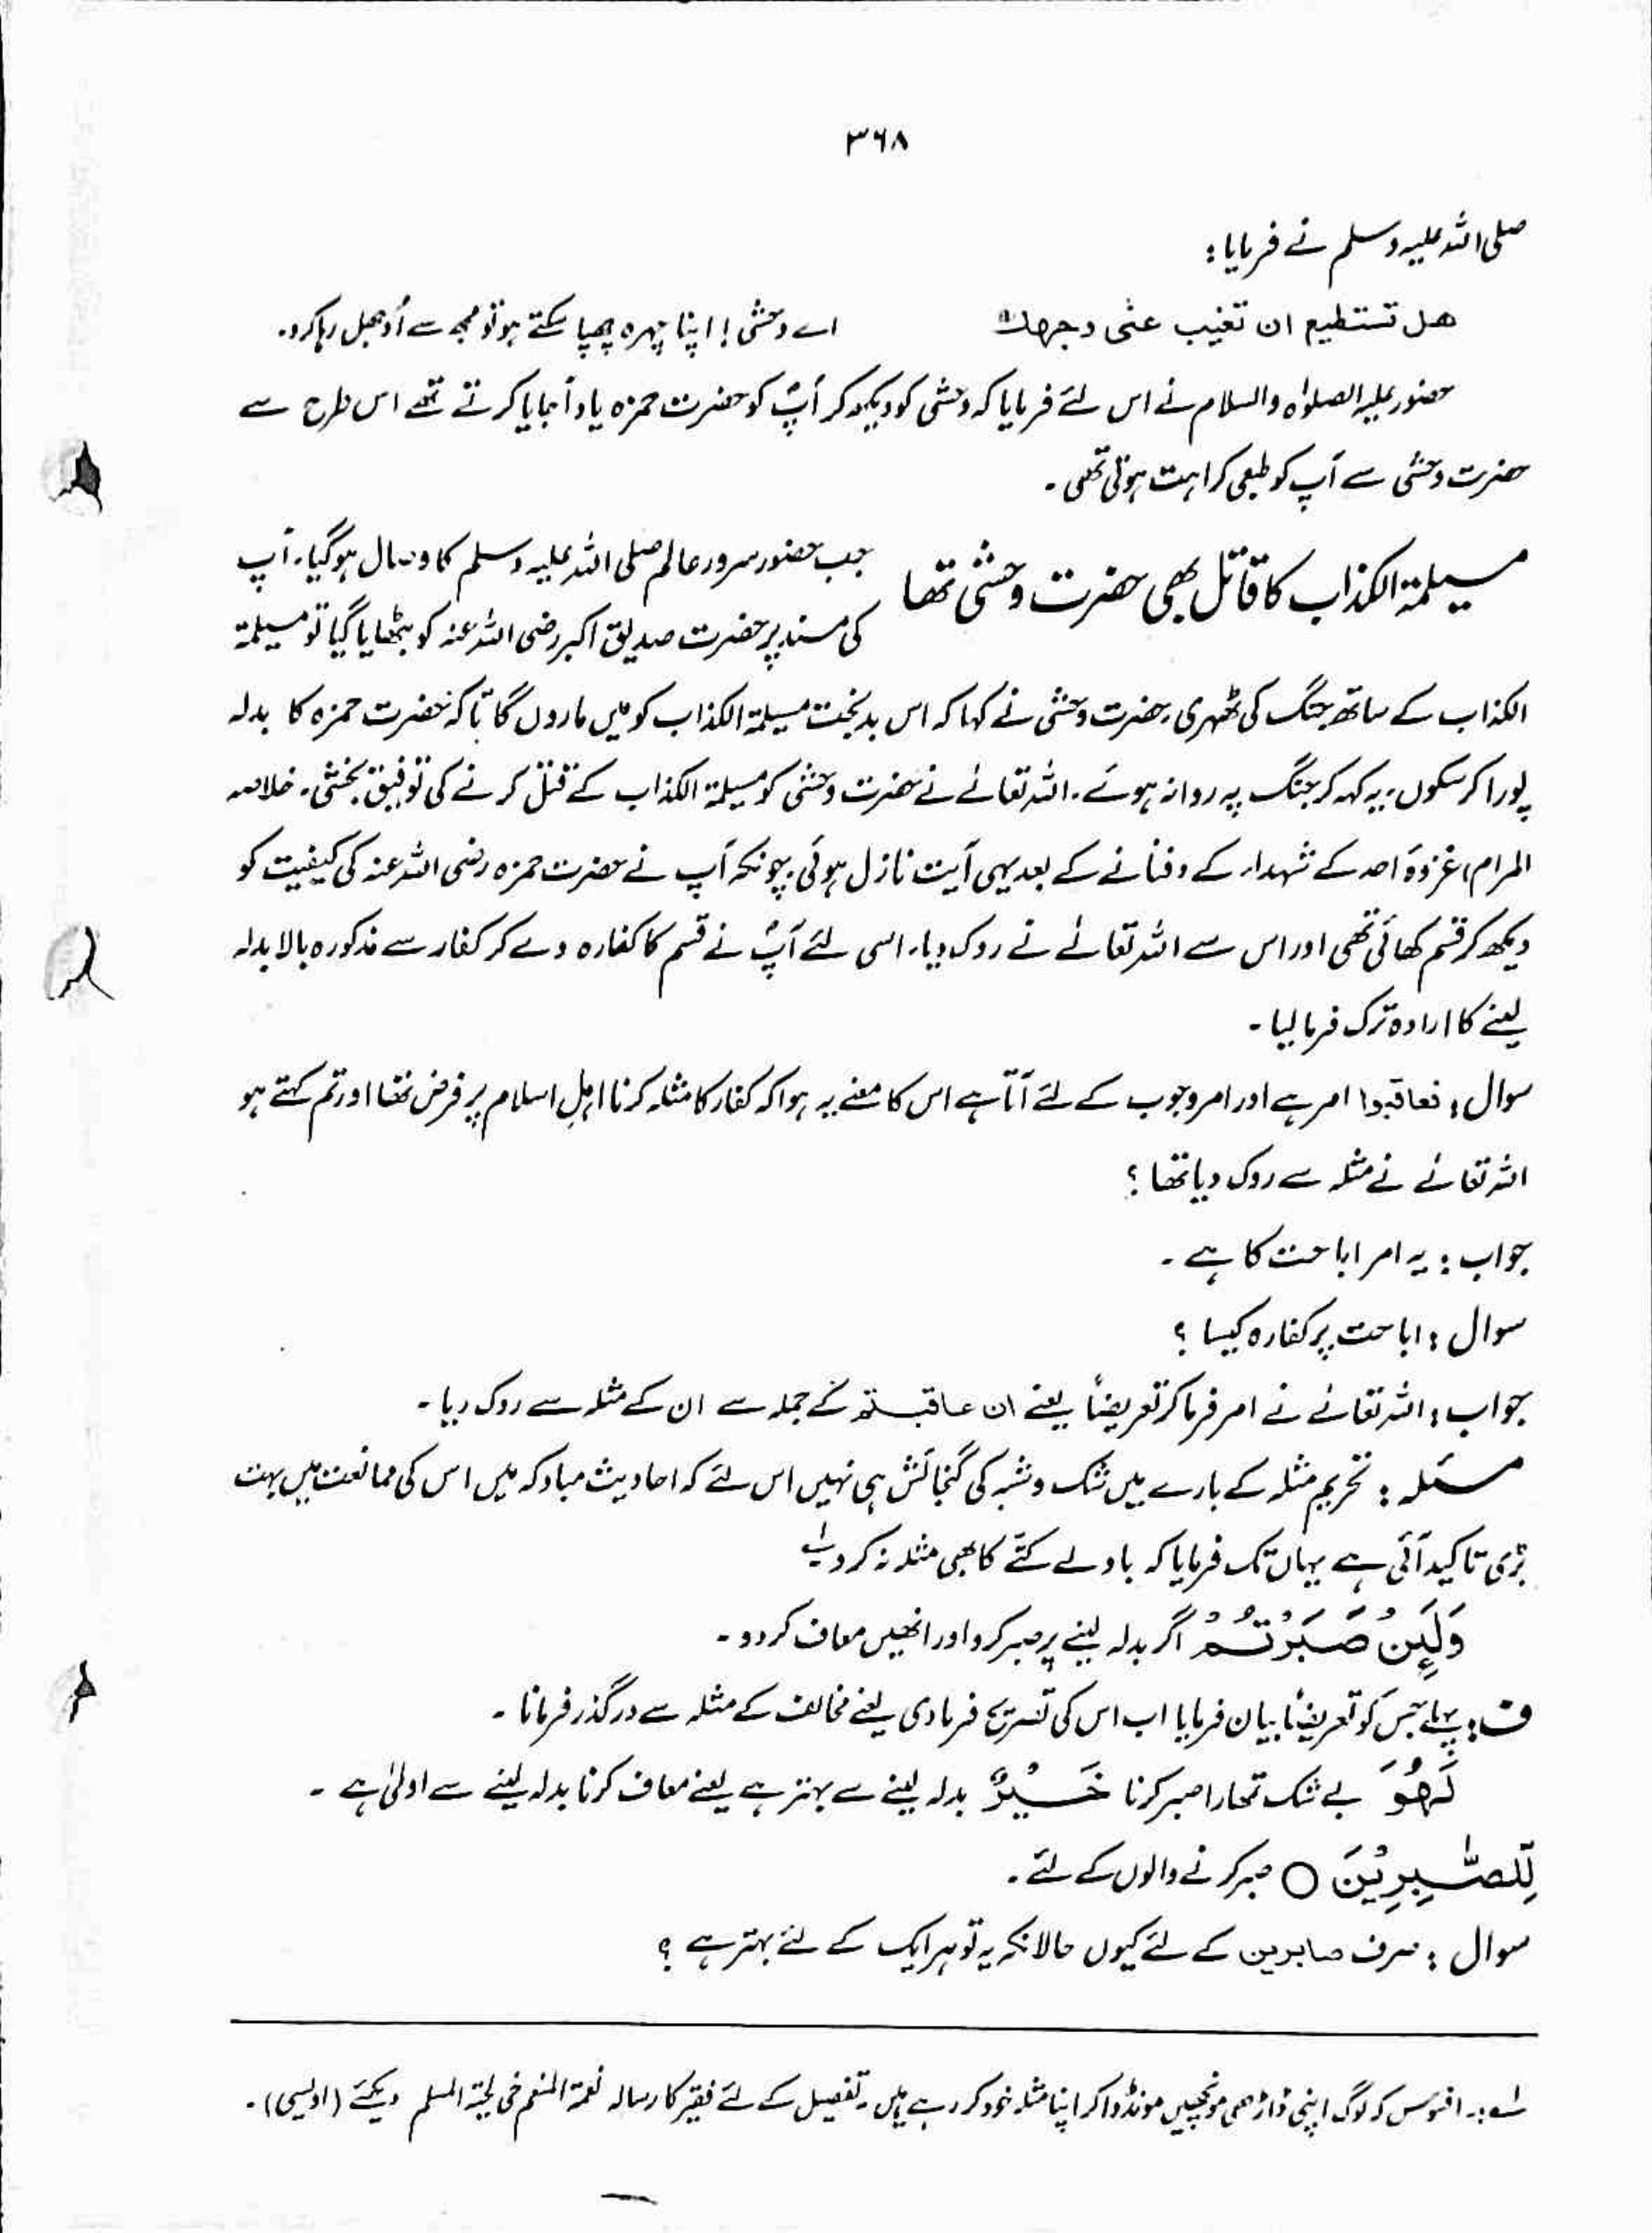 ۳۶۸
صلی اللہ علیہ وسلم نے فرمایا:
ھل تستطیع ان تغیب عنی وجھک اے وحشی! اپنا چہرہ چھپا سکتے ہو تو مجھ سے اُوجھل رہا کرو۔
حضور علیہ الصلوٰۃ والسلام نے اس لئے فرمایا کہ وحشی کو دیکھ کر آپؐ کو حضرت حمزہ یاد آجایا کرتے تھے اس طرح سے
حضرت وحشی سے آپ کو طبعی کراہت ہوتی تھی۔
مسیلمۃ الکذاب کا قاتل بھی حضرت وحشی تھا جب حضور سرور عالم صلی اللہ علیہ وسلم کا وصال ہوگیا۔ آپ
کی مسند پر حضرت صدیق اکبر رضی اللہ عنہ کو بٹھایا گیا تو مسیلمۃ
الکذاب کے ساتھ جنگ کی ٹھہری۔ حضرت وحشی نے کہا کہ اس بدبخت مسیلمۃ الکذاب کو میں ماروں گا تاکہ حضرت حمزہ کا بدلہ
پورا کر سکوں۔ یہ کہہ کر جنگ پہ روانہ ہوئے۔ اللہ تعالےٰ نے حضرت وحشی کو مسیلمۃ الکذاب کے قتل کرنے کی توفیق بخشی۔ خلاصہ
المرام، غزوۂ احد کے شہداء کے دفنانے کے بعد یہی آیت نازل ہوئی۔ چونکہ آپ نے حضرت حمزہ رضی اللہ عنہ کی کیفیت کو
دیکھ کر قسم کھائی تھی اور اس سے اللہ تعالےٰ نے روک دیا۔ اسی لئے آپؐ نے قسم کا کفارہ دے کر کفار سے مذکورہ بالا بدلہ
لینے کا ارادہ ترک فرما لیا۔
سوال: فعاقبوا امر ہے اور امر وجوب کے لئے آتا ہے اس کا معنے یہ ہوا کہ کفار کا مثلہ کرنا اہل اسلام پر فرض تھا اور تم کہتے ہو
اللہ تعالےٰ نے مثلہ سے روک دیا تھا؟
جواب: یہ امر اباحت کا ہے۔
سوال: اباحت پر کفارہ کیسا؟
جواب: اللہ تعالےٰ نے امر فرما کر تعریضاً یعنے ان عاقبتم کے جملہ سے ان کے مثلہ سے روک دیا۔
مسئلہ: تحریم مثلہ کے بارے میں شک و شبہ کی گنجائش ہی نہیں اس لئے کہ احادیث مبارکہ میں اس کی ممانعت میں بہت
بڑی تاکید آئی ہے یہاں تک فرمایا کہ باولے کتے کا بھی مثلہ نہ کرو۔لہ
وَلَئِنْ صَبَرْتُمْ اگر بدلہ لینے پر صبر کرو اور انھیں معاف کردو۔
ف: پہلے جس کو تعریضاً بیان فرمایا اب اس کی تصریح فرمادی یعنے مخالف کے مثلہ سے درگذر فرمانا۔
لَھُوَ بے شک تمھارا صبر کرنا خَیْرٌ بدلہ لینے سے بہتر ہے یعنے معاف کرنا بدلہ لینے سے اولیٰ ہے۔
لِّلصّٰبِرِیْنَ ○ صبر کرنے والوں کے لئے۔
سوال: صرف صابرین کے لئے کیوں حالانکہ یہ تو ہر ایک کے لئے بہتر ہے؟
لہ:۔ افسوس کہ لوگ اپنی ڈاڑھی مونچھیں مونڈوا کر اپنا مثلہ خود کر رہے ہیں۔ تفصیل کے لئے فقیر کا رسالہ نعمۃ المنعم فی لحیۃ المسلم دیکھئے (اویسی)۔